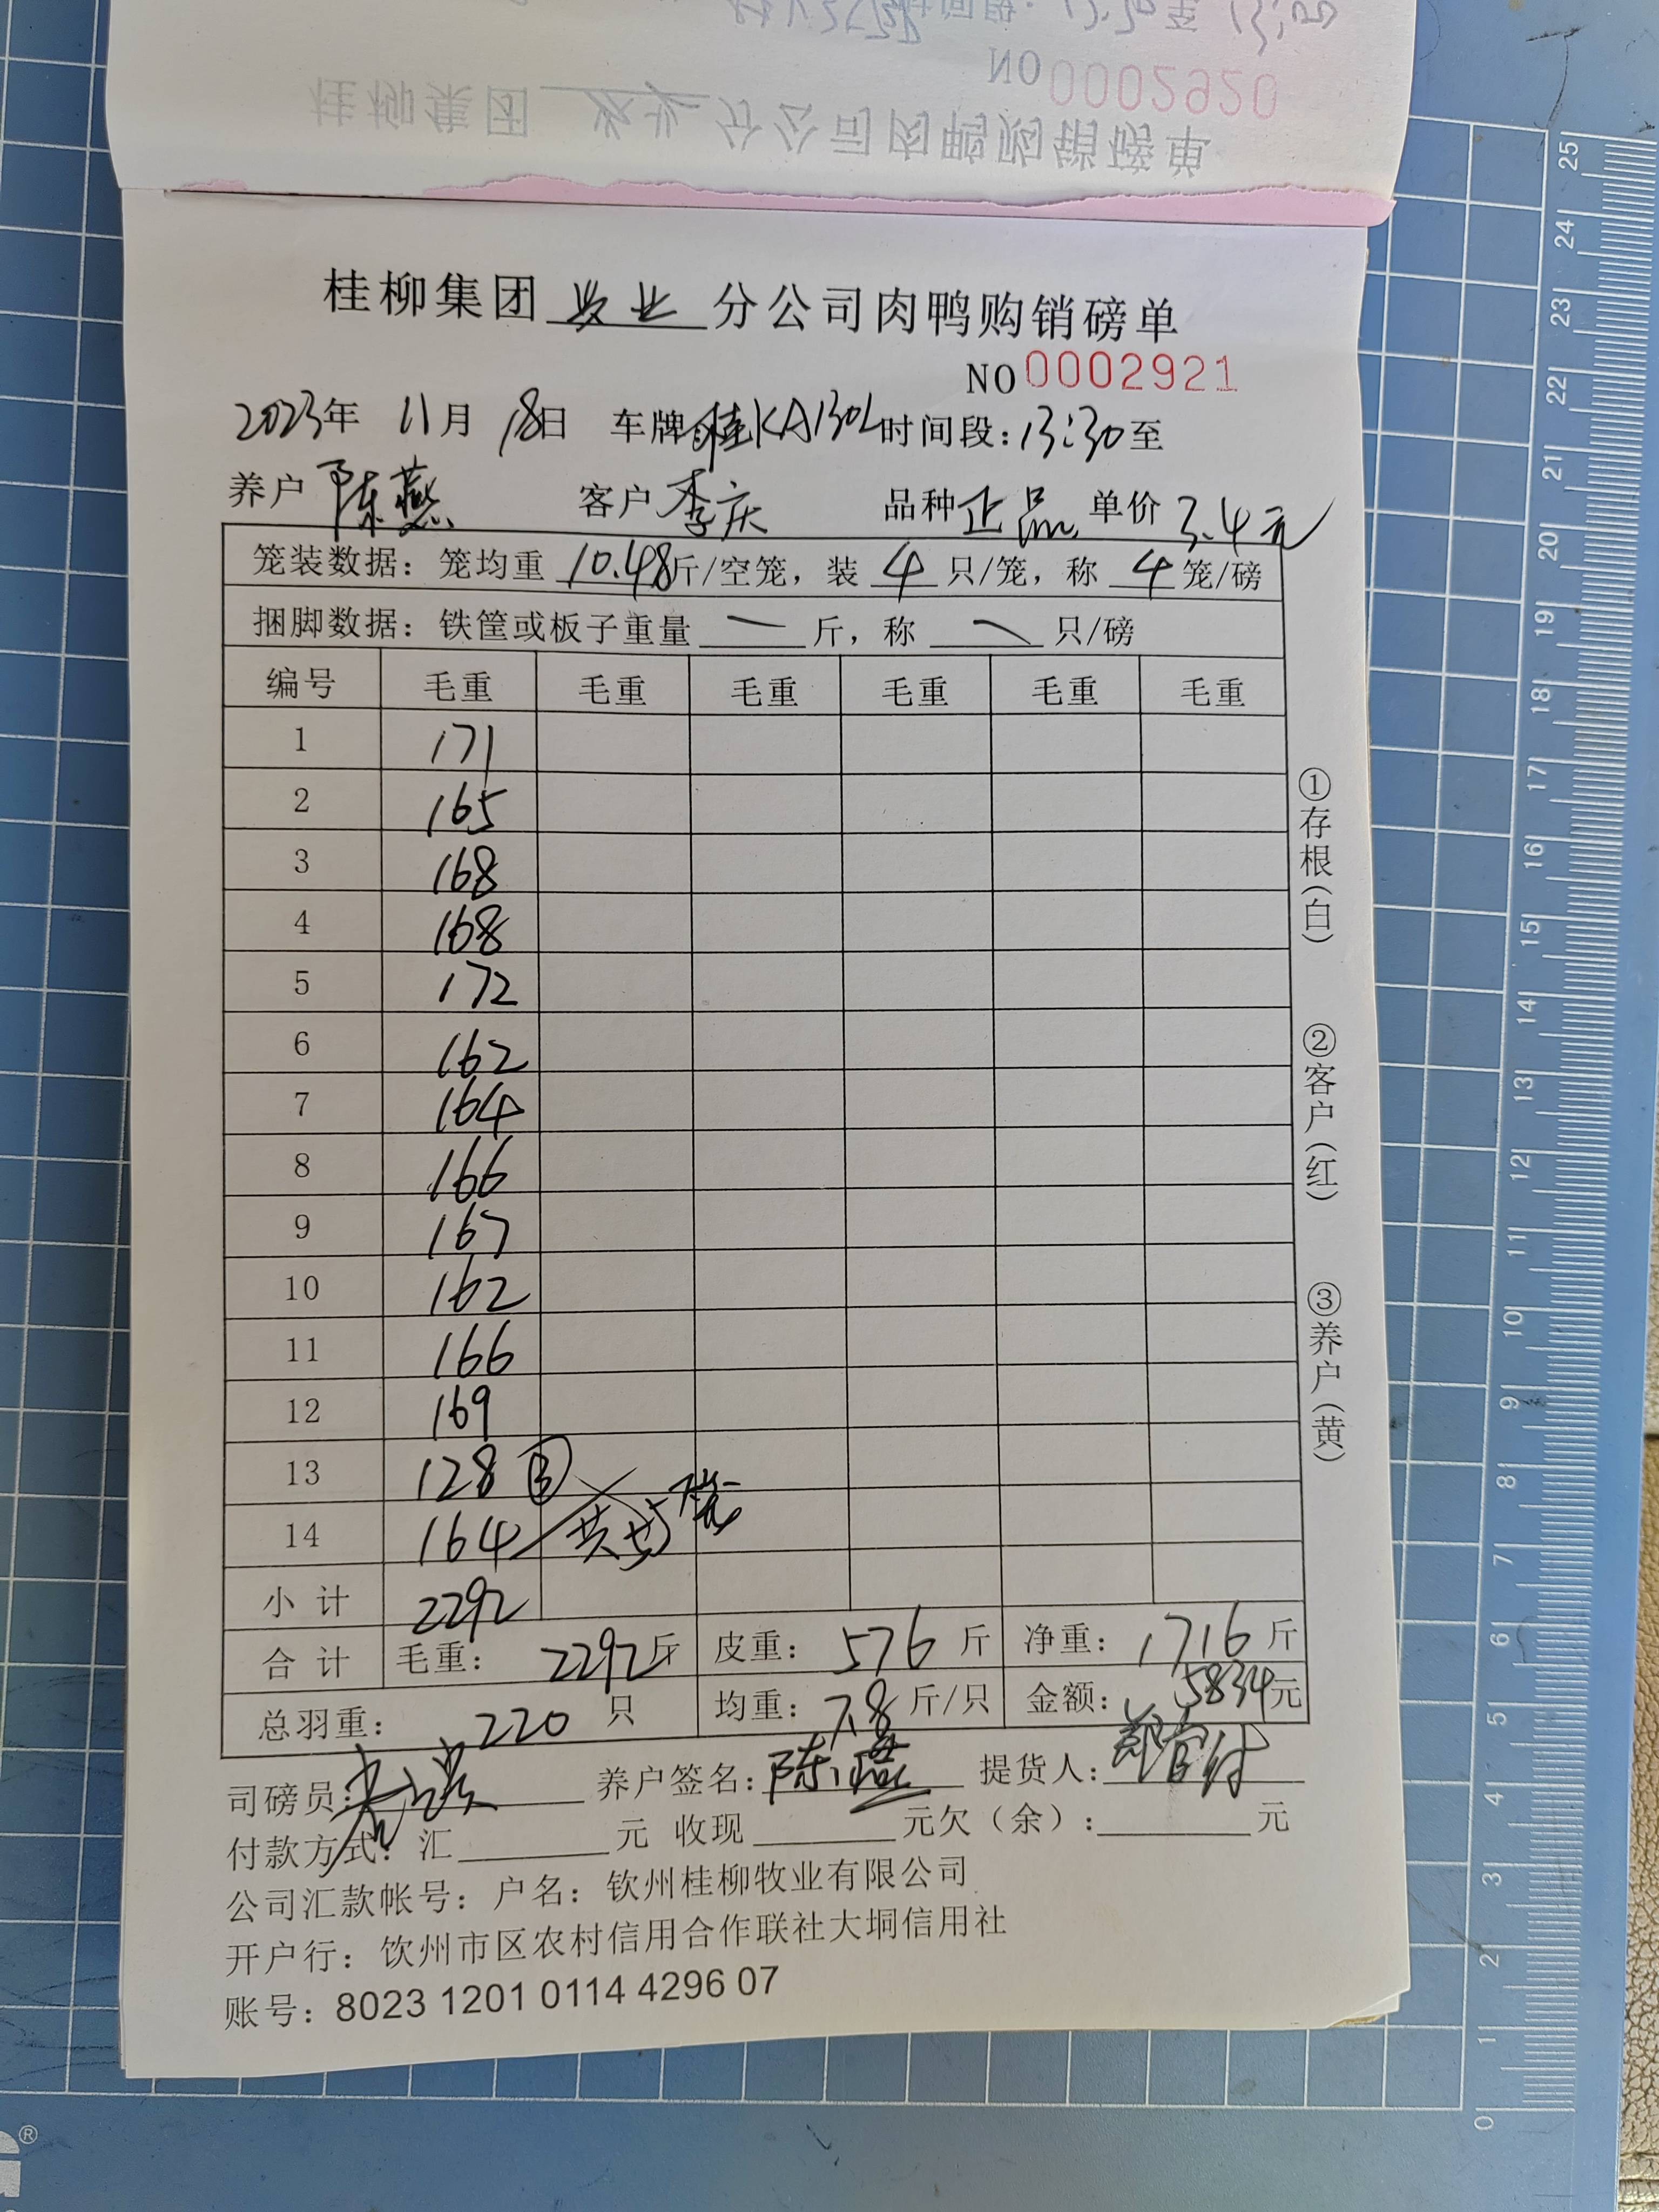 NO 0002920
桂柳集团 牧业 分公司肉鸭购销磅单
桂柳集团 牧业 分公司肉鸭购销磅单
NO 0002921
2023年 11月 18日 车牌 桂KA130L 时间段:13:30至
养户 陈燕 客户 李庆 品种 正品 单价 3.4元
笼装数据: 笼均重 10.48斤/空笼, 装 4 只/笼, 称 4 笼/磅
捆脚数据: 铁筐或板子重量 一 斤, 称 一 只/磅
编号 毛重 毛重 毛重 毛重 毛重 毛重
1 171
2 165
3 168
4 168
5 172
6 162
7 164
8 166
9 167
10 162
11 166
12 169
13 128 ③
14 164 共55笼
小计 2292
合计 毛重: 2292斤 皮重: 576 斤 净重: 1716 斤
总羽重: 220 只 均重: 7.8 斤/只 金额: 5834元
司磅员: 养户签名: 陈燕 提货人:
付款方式: 汇 元 收现 元欠(余): 元
公司汇款帐号: 户名: 钦州桂柳牧业有限公司
开户行: 饮州市区农村信用合作联社大垌信用社
账号: 8023 1201 0114 4296 07
①存根(白)
②客户(红)
③养户(黄)
25
24
23
22
21
20
19
18
17
16
15
14
13
12
11
10
9
8
7
6
5
4
3
2
1
0